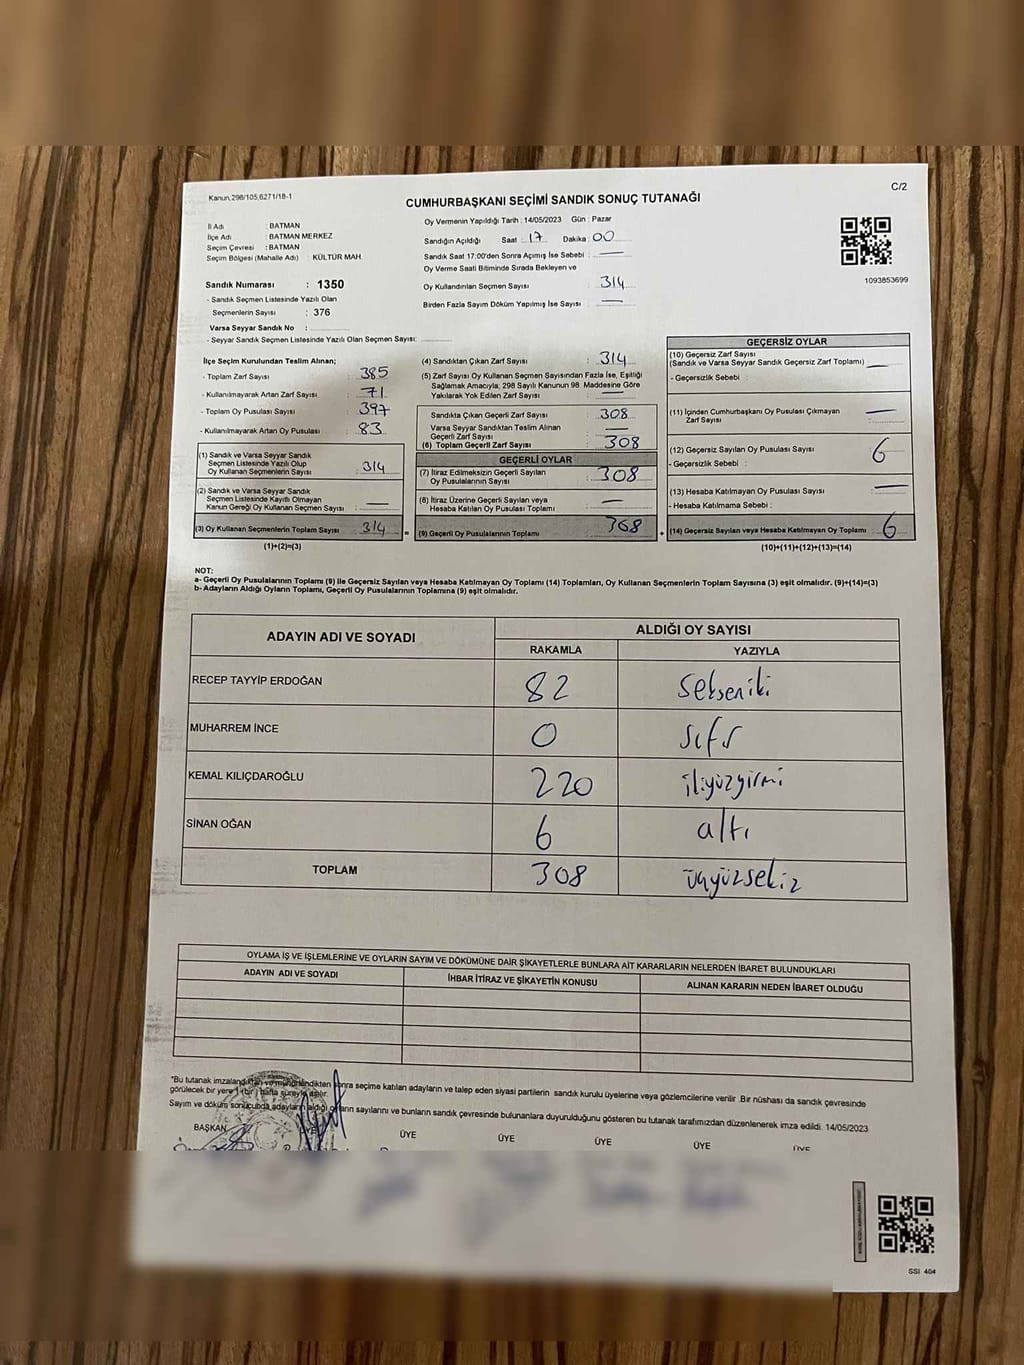 Kanun,298/105,6271/18-1
C/2
CUMHURBAŞKANI SEÇİMİ SANDIK SONUÇ TUTANAĞI
İl Adı : BATMAN
İlçe Adı : BATMAN MERKEZ
Seçim Çevresi : BATMAN
Seçim Bölgesi (Mahalle Adı) : KÜLTÜR MAH.
Sandık Numarası : 1350
- Sandık Seçmen Listesinde Yazılı Olan
Seçmenlerin Sayısı : 376
Varsa Seyyar Sandık No :
- Seyyar Sandık Seçmen Listesinde Yazılı Olan Seçmen Sayısı:
Oy Vermenin Yapıldığı Tarih : 14/05/2023 Gün : Pazar
Sandığın Açıldığı Saat : 17 Dakika : 00
Sandık Saat 17:00'den Sonra Açımış İse Sebebi : —
Oy Verme Saati Bitiminde Sırada Bekleyen ve
Oy Kullandırılan Seçmen Sayısı : 314
Birden Fazla Sayım Döküm Yapılmış İse Sayısı : —
1093853699
İlçe Seçim Kurulundan Teslim Alınan;
- Toplam Zarf Sayısı : 385
- Kullanılmayarak Artan Zarf Sayısı : 71
- Toplam Oy Pusulası Sayısı : 397
- Kullanılmayarak Artan Oy Pusulası : 83
(1) Sandık ve Varsa Seyyar Sandık
Seçmen Listesinde Yazılı Olup
Oy Kullanan Seçmenlerin Sayısı : 314
(2) Sandık ve Varsa Seyyar Sandık
Seçmen Listesinde Kayıtlı Olmayan
Kanun Gereği Oy Kullanan Seçmen Sayısı : —
(3) Oy Kullanan Seçmenlerin Toplam Sayısı : 314 =
(1)+(2)=(3)
(4) Sandıktan Çıkan Zarf Sayısı : 314
(5) Zarf Sayısı Oy Kullanan Seçmen Sayısından Fazla İse, Eşitliği
Sağlamak Amacıyla; 298 Sayılı Kanunun 98. Maddesine Göre
Yakılarak Yok Edilen Zarf Sayısı : —
Sandıkta Çıkan Geçerli Zarf Sayısı : 308
Varsa Seyyar Sandıktan Teslim Alınan
Geçerli Zarf Sayısı : —
(6) Toplam Geçerli Zarf Sayısı : 308
GEÇERLİ OYLAR
(7) İtiraz Edilmeksizin Geçerli Sayılan
Oy Pusulalarının Sayısı : 308
(8) İtiraz Üzerine Geçerli Sayılan veya
Hesaba Katılan Oy Pusulası Toplamı : —
(9) Geçerli Oy Pusulalarının Toplamı : 308 +
GEÇERSİZ OYLAR
(10) Geçersiz Zarf Sayısı
(Sandık ve Varsa Seyyar Sandık Geçersiz Zarf Toplamı) : —
- Geçersizlik Sebebi :
(11) İçinden Cumhurbaşkanı Oy Pusulası Çıkmayan
Zarf Sayısı : —
(12) Geçersiz Sayılan Oy Pusulası Sayısı : 6
- Geçersizlik Sebebi :
(13) Hesaba Katılmayan Oy Pusulası Sayısı : —
- Hesaba Katılmama Sebebi :
(14) Geçersiz Sayılan veya Hesaba Katılmayan Oy Toplamı : 6
(10)+(11)+(12)+(13)=(14)
NOT:
a- Geçerli Oy Pusulalarının Toplamı (9) ile Geçersiz Sayılan veya Hesaba Katılmayan Oy Toplamı (14) Toplamları, Oy Kullanan Seçmenlerin Toplam Sayısına (3) eşit olmalıdır. (9)+(14)=(3)
b- Adayların Aldığı Oyların Toplamı, Geçerli Oy Pusulalarının Toplamına (9) eşit olmalıdır.
ADAYIN ADI VE SOYADI ALDIĞI OY SAYISI
RAKAMLA YAZIYLA
RECEP TAYYİP ERDOĞAN 82 Seksen iki
MUHARREM İNCE 0 Sıfır
KEMAL KILIÇDAROĞLU 220 ikiyüzyirmi
SİNAN OĞAN 6 altı
TOPLAM 308 üçyüzsekiz
OYLAMA İŞ VE İŞLEMLERİNE VE OYLARIN SAYIM VE DÖKÜMÜNE DAİR ŞİKAYETLERLE BUNLARA AİT KARARLARIN NELERDEN İBARET BULUNDUKLARI
ADAYIN ADI VE SOYADI İHBAR İTİRAZ VE ŞİKAYETİN KONUSU ALINAN KARARIN NEDEN İBARET OLDUĞU
*Bu tutanak imzalandıktan ve mühürlendikten sonra seçime katılan adayların ve talep eden siyasi partilerin sandık kurulu üyelerine veya gözlemcilerine verilir. Bir nüshası da sandık çevresinde
görülecek bir yere 1 (bir) hafta süreyle asılır.
Sayım ve döküm sonucunda adayların aldığı oyların sayılarını ve bunların sandık çevresinde bulunanlara duyurulduğunu gösteren bu tutanak tarafımızdan düzenlenerek imza edildi. 14/05/2023
BAŞKAN ÜYE ÜYE ÜYE ÜYE ÜYE
SSI: 404